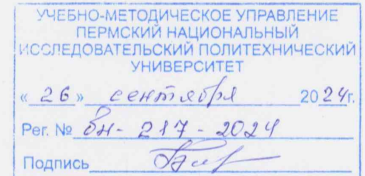 УЧЕБНО-МЕТОДИЧЕСКОЕ УПРАВЛЕНИЕ
ПЕРМСКИЙ НАЦИОНАЛЬНЫЙ
ИССЛЕДОВАТЕЛЬСКИЙ ПОЛИТЕХНИЧЕСКИЙ
УНИВЕРСИТЕТ
«26» сентября 2024г.
Рег. № вн-217-2024
Подпись